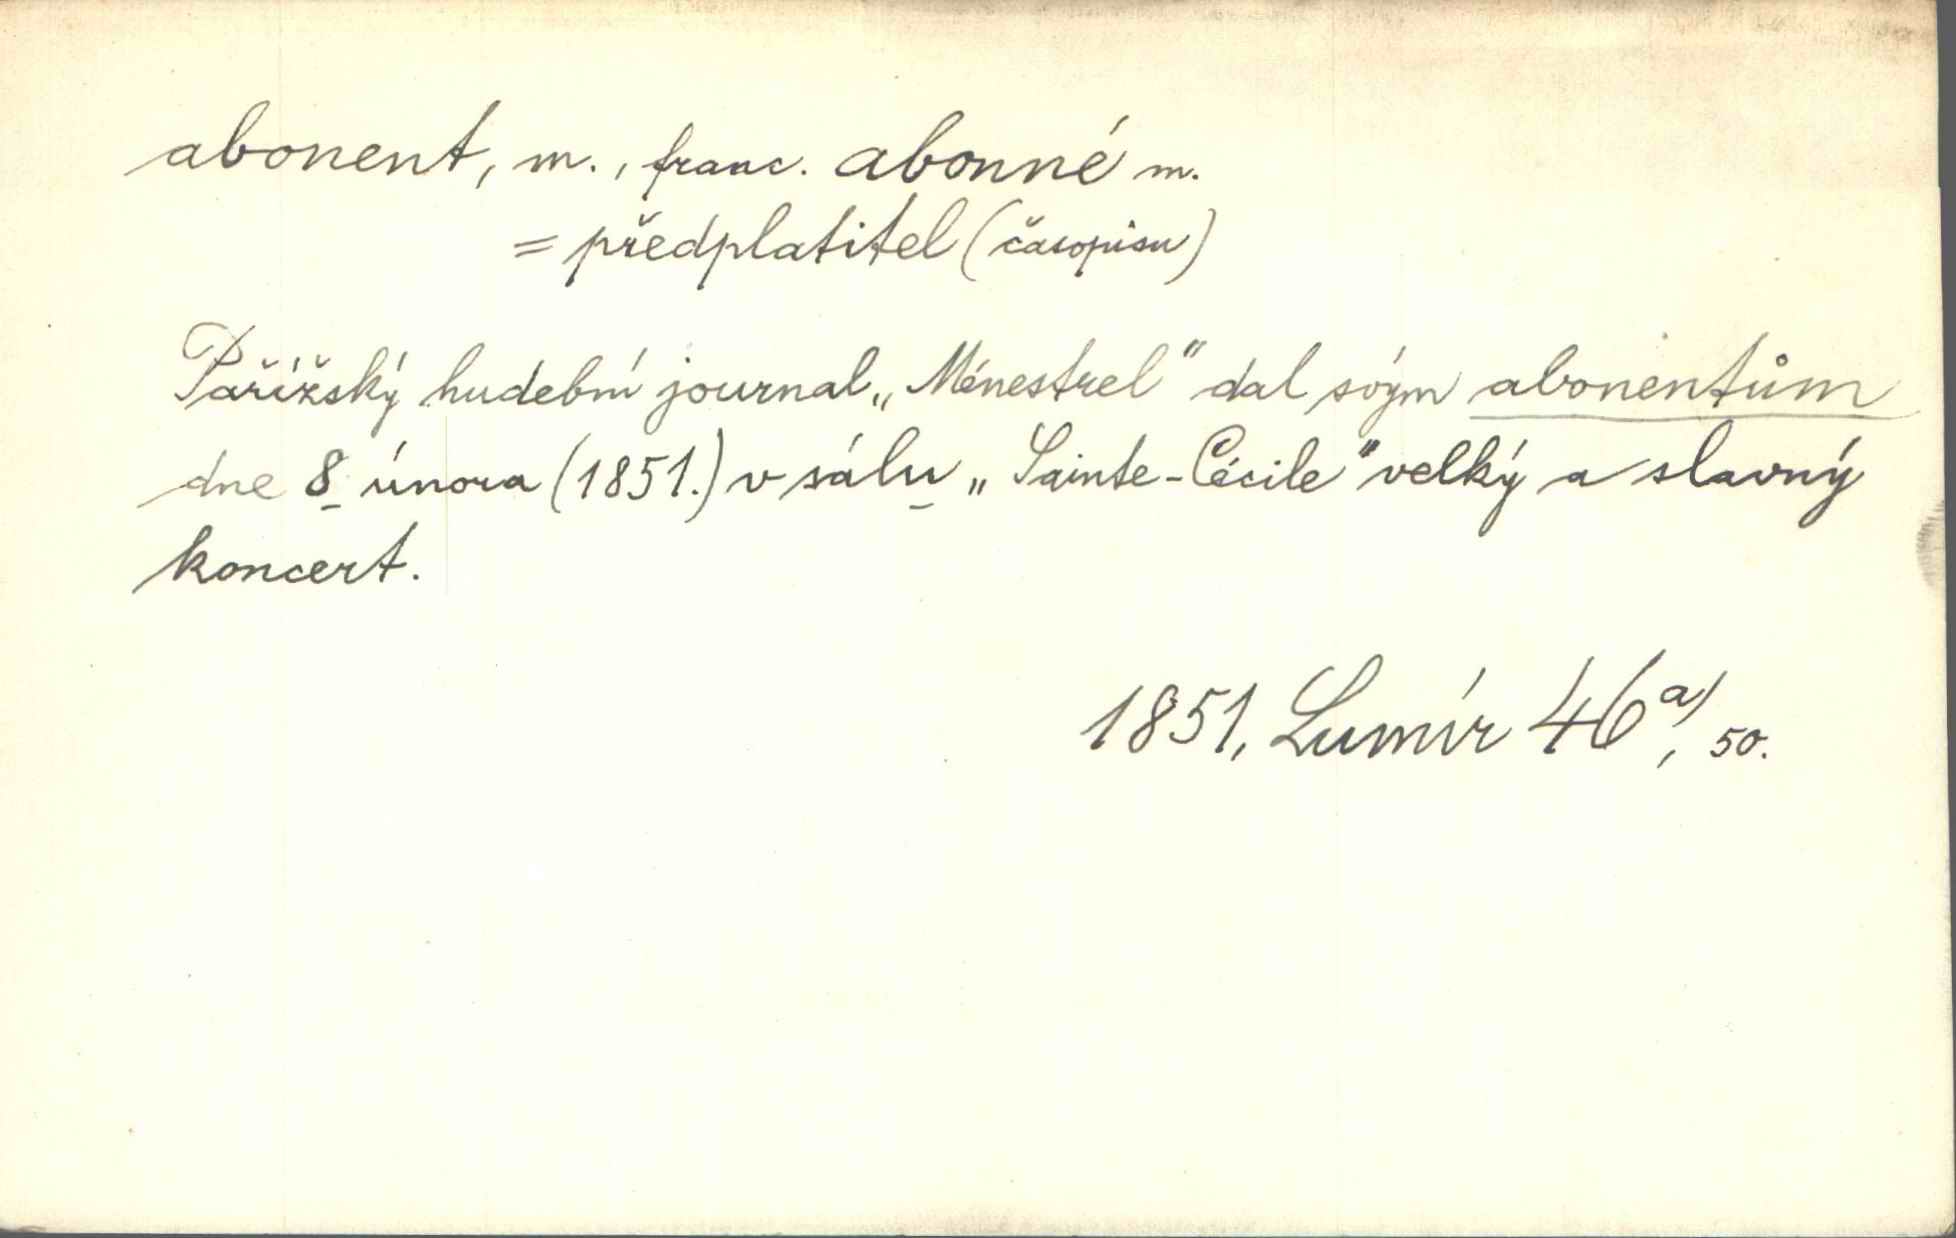 abonent, m., franc. abonné m.
= předplatitel (časopisu)
Pařížský hudební journal „Ménestrel" dal svým abonentům
dne 8 února (1851.) v sálu „Sainte-Cécile" velký a slavný
koncert.
1851, Lumír 46a), 50.